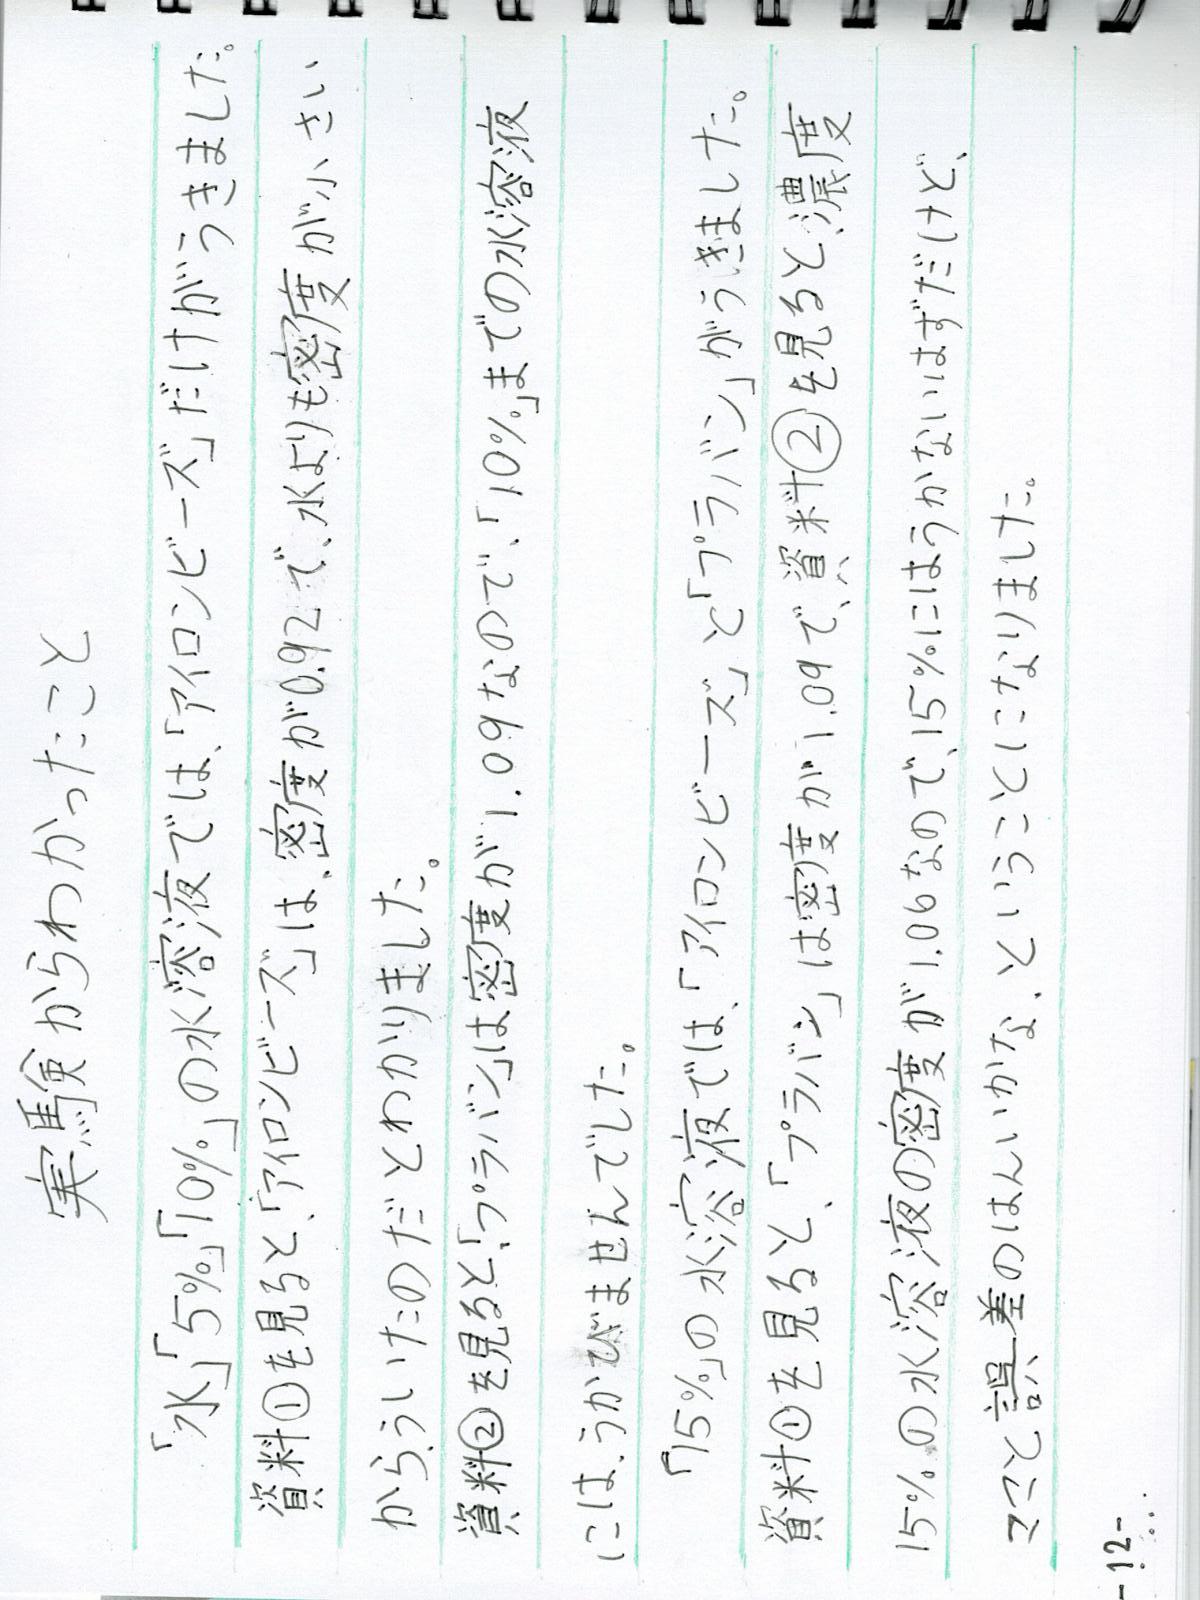 実験からわかったこと
「水」「5%」「10%」の水溶液では、「アイロンビーズ」だけがうきました。
資料①を見ると、「アイロンビーズ」は、密度が0.92で、水よりも密度が小さい
から、ういたのだとわかりました。
資料②を見ると、「プラバン」は密度が1.09なので、「10%」までの水溶液
には、うかびませんでした。
「15%」の水溶液では、「アイロンビーズ」と「プラバン」がうきました。
資料①を見ると、「プラバン」は密度が1.09で、資料②を見ると濃度
15%の水溶液の密度が1.06なので、15%にはうかないはずだけど、
ママと誤差のはんいかな、ということになりました。
-12-